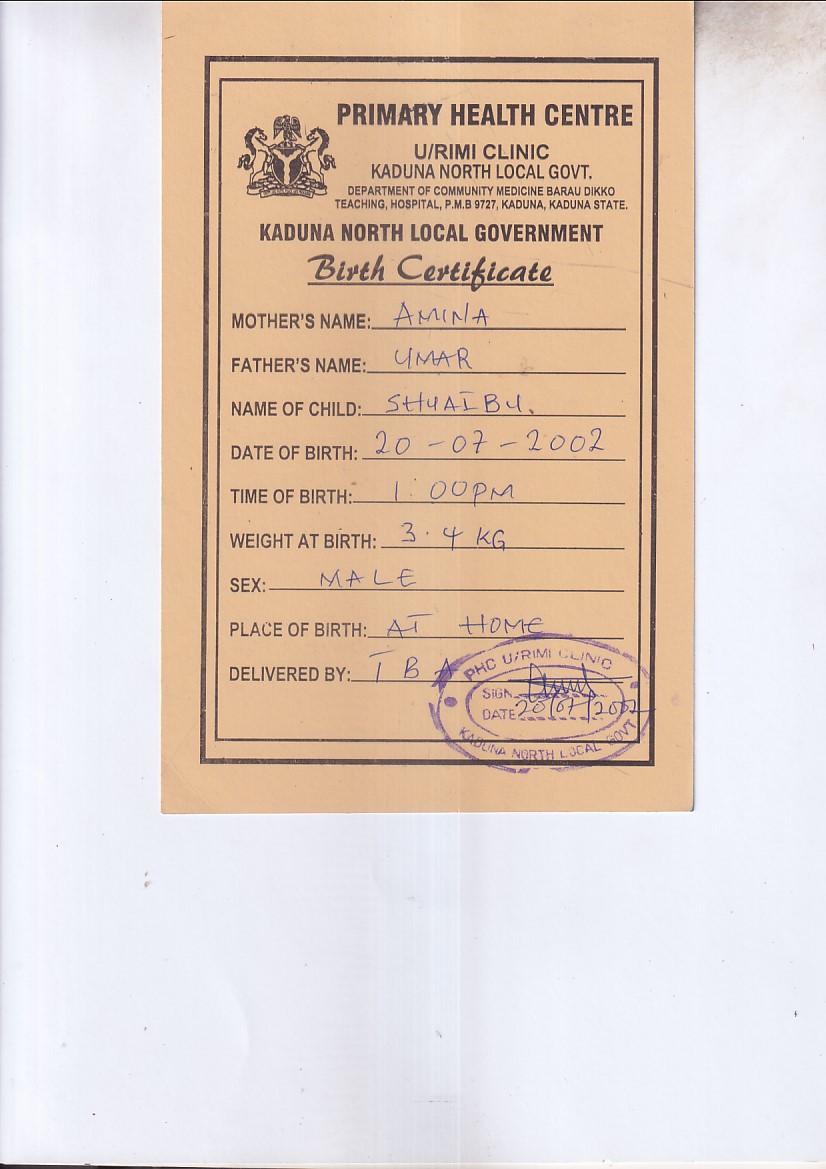 PRIMARY HEALTH CENTRE
U/RIMI CLINIC
KADUNA NORTH LOCAL GOVT.
DEPARTMENT OF COMMUNITY MEDICINE BARAU DIKKO
TEACHING, HOSPITAL, P.M.B 9727, KADUNA, KADUNA STATE.
KADUNA NORTH LOCAL GOVERNMENT
Birth Certificate
MOTHER'S NAME: AMINA
FATHER'S NAME: UMAR
NAME OF CHILD: SHUAIBU.
DATE OF BIRTH: 20-07-2002
TIME OF BIRTH: 1:00PM
WEIGHT AT BIRTH: 3.4 KG
SEX: MALE
PLACE OF BIRTH: AT HOME
DELIVERED BY: TBA
PHC U/RIMI CLINIC
SIGN
DATE 20/07/2002
KADUNA NORTH LOCAL GOVT